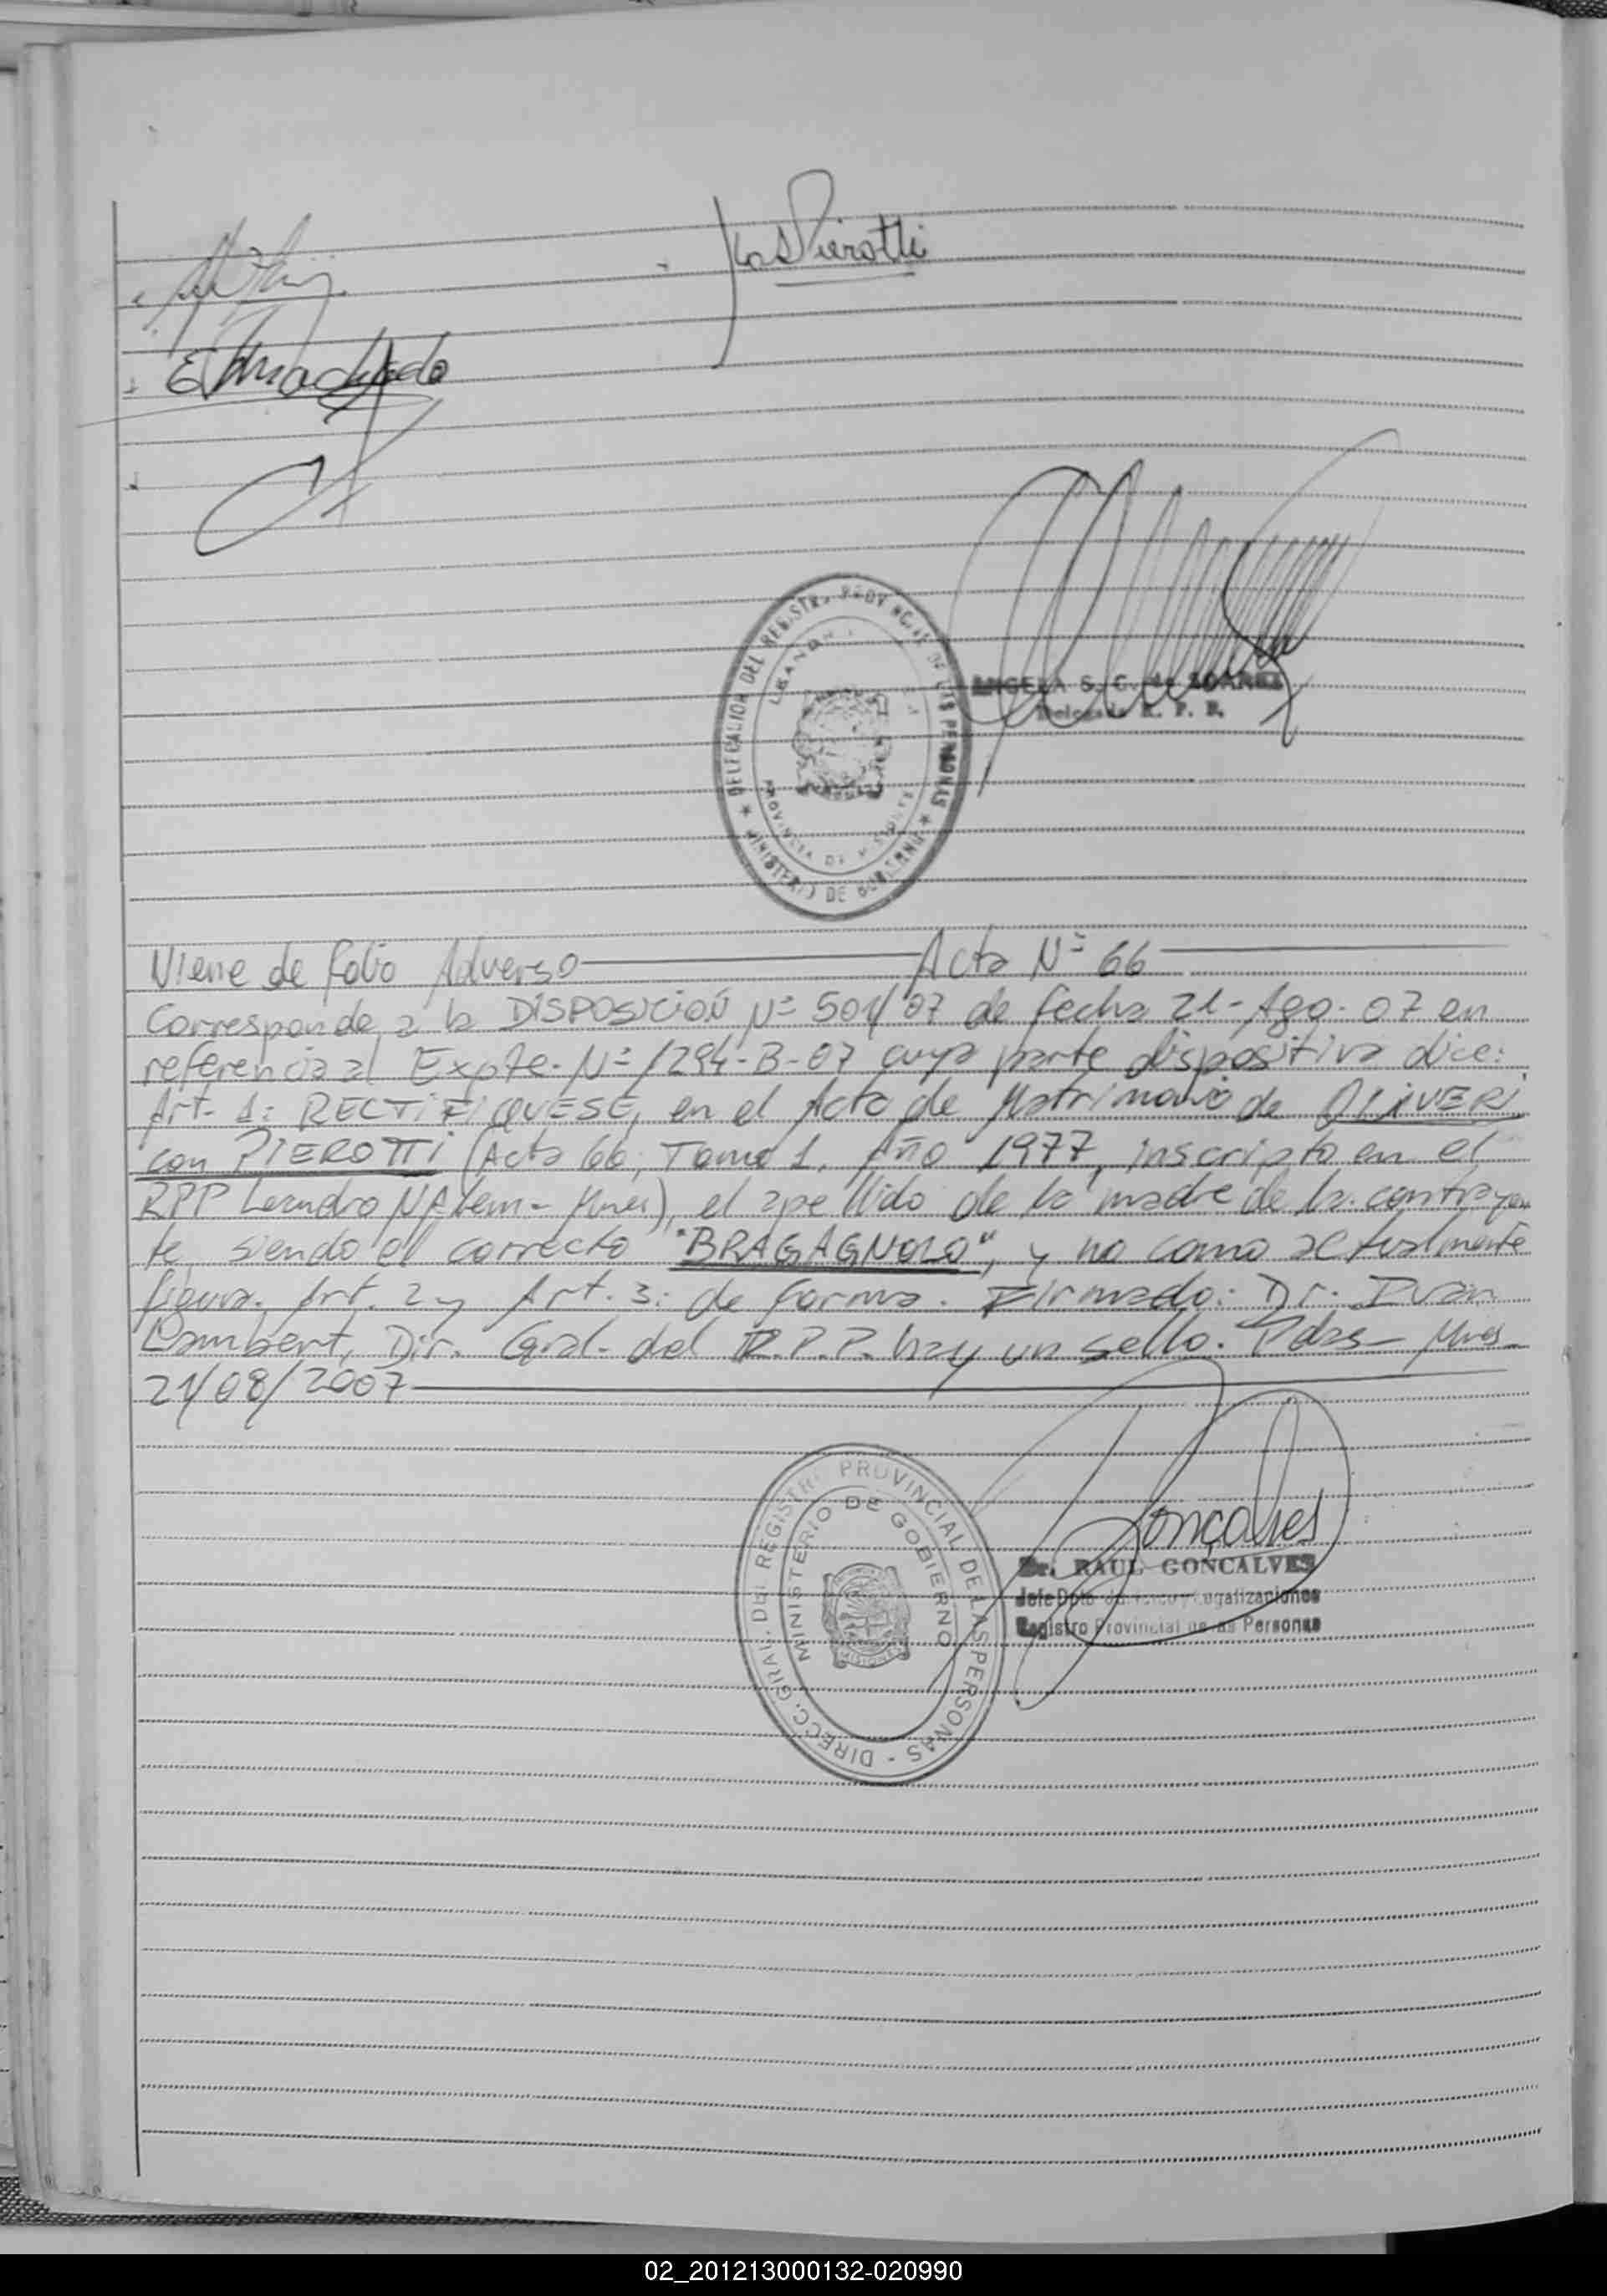 Pierotti
E Machado
DELEGACION DEL REGISTRO PROVINCIAL DE LAS PERSONAS ★ MINISTERIO DE GOBIERNO ★
LEANDRO
PROVINCIA DE MISIONES
ANGELA S. C. de SOAREZ
Delegada R. P. P.
Viene de folio Adverso Acta Nº 66
Corresponde a la DISPOSICIÓN Nº 501/07 de fecha 21-Ago-07 en
referencia al Expte. Nº 1294-B-07 cuya parte dispositiva dice:
Art. 1: RECTIFIQUESE, en el Acta de Matrimonio de OLIVERI
con PIEROTTI (Acta 66, Tomo 1, Año 1977, inscripto en el
RPP Leandro N Alem - Mnes), el apellido de la madre de la contrayen
te, siendo el correcto "BRAGAGNOLO", y no como actualmente
figura. Art. 2 y Art. 3: de forma. Firmado: Dr. Iván
Lambert, Dir. Gral. del R.P.P. hay un sello. Pdas - Mnes
21/08/2007
DIRECC. GRAL. DEL REGISTRO PROVINCIAL DE LAS PERSONAS -
MINISTERIO DE GOBIERNO
MISIONES
Gonçalves
Dr. RAUL GONCALVES
Jefe Dpto. y Legalizaciones
Registro Provincial de las Personas
02_201213000132-020990